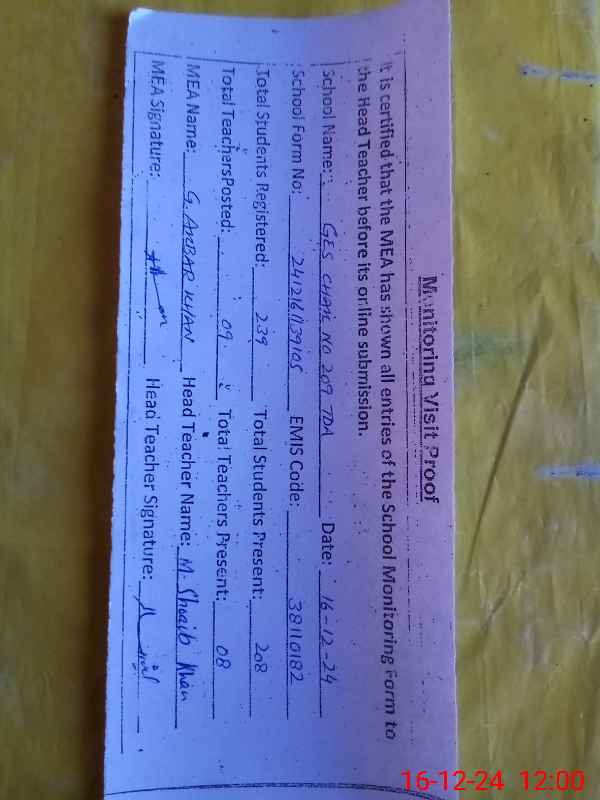 Monitoring Visit Proof
It is certified that the MEA has shown all entries of the School Monitoring Form to
the Head Teacher before its online submission.
School Name: GES CHAK NO 209 TDA Date: 16-12-24
School Form No: 2412161139105 EMIS Code: 38110182
Total Students Registered: 239 Total Students Present: 208
Total TeachersPosted: 09 Total Teachers Present: 08
MEA Name: G. AKBAR KHAN Head Teacher Name: M. Shoaib Khan
MEA Signature: Head Teacher Signature:
16-12-24 12:00